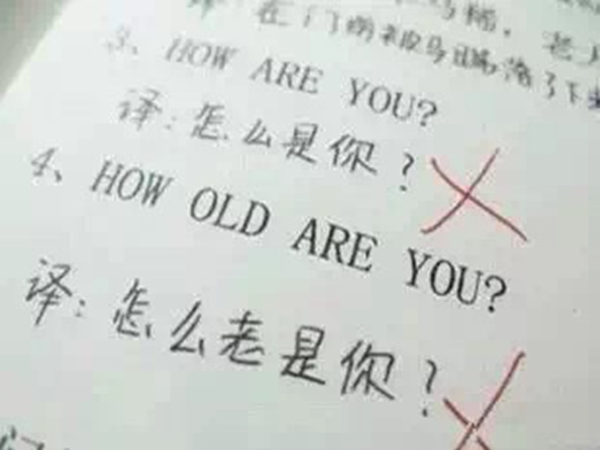 译：在门前被马踢落了下来
3、HOW ARE YOU?
译：怎么是你？
4、HOW OLD ARE YOU?
译：怎么老是你？